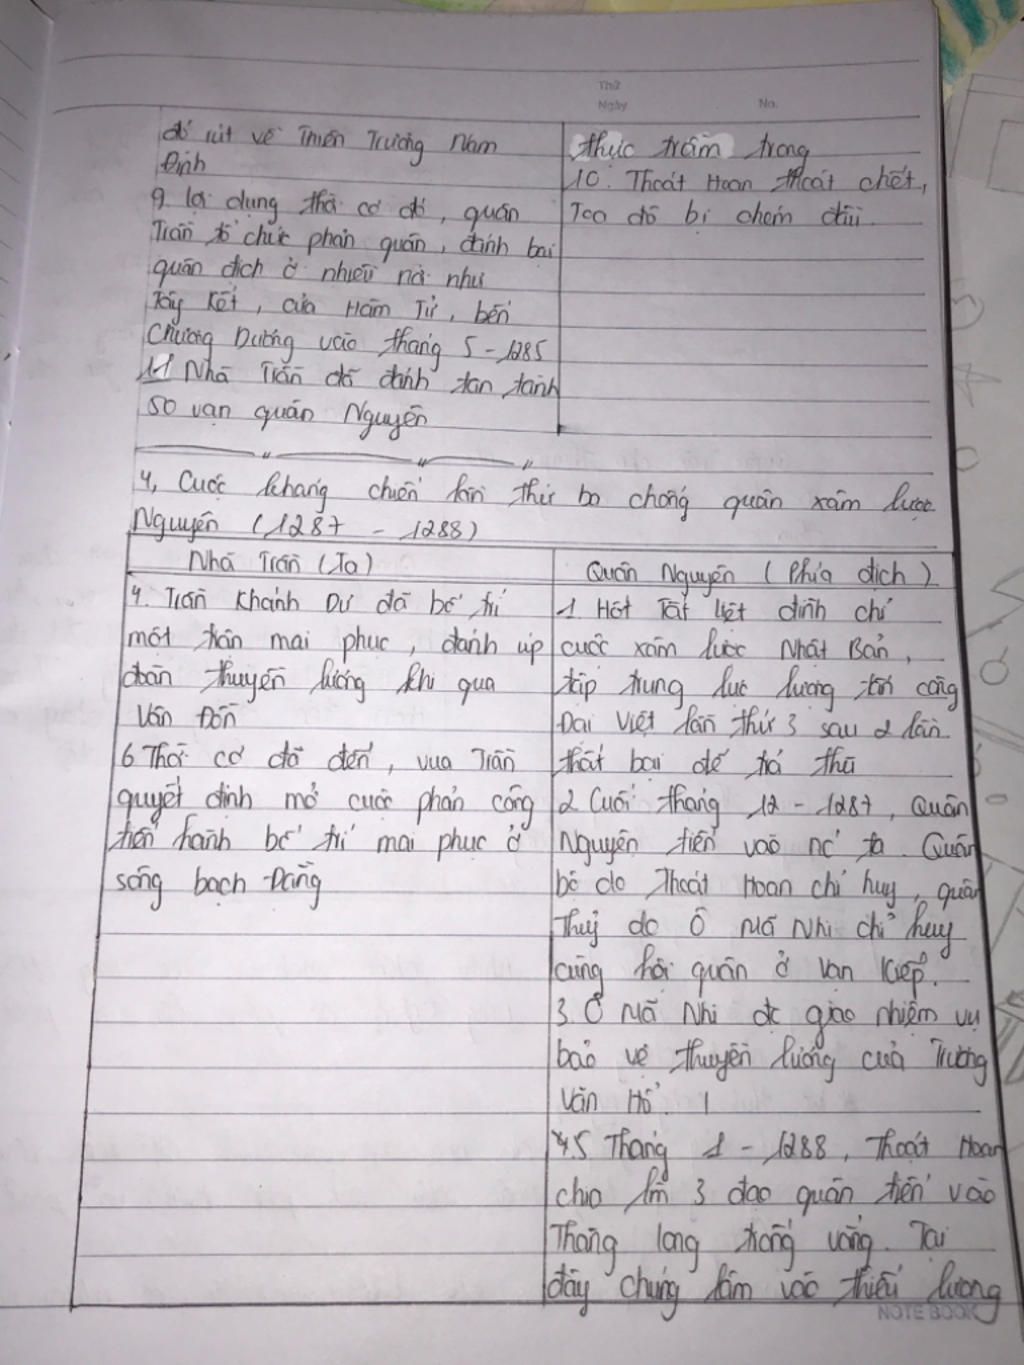 Thứ
Ngày
No.
đó rút về Thiên Trường Nam
Định
9. lợi dụng thời cơ đó, quân
Trần tổ chức phản quân, đánh bại
quân địch ở nhiều nơi như
Tây Kết, cửa Hàm Tử, bến
Chương Dương vào tháng 5 - 1285
11 Nhà Trần đã đánh tan tành
50 vạn quân Nguyên
thực trầm trong
10. Thoát Hoan thoát chết,
Toa đô bị chém đầu
4, Cuộc kháng chiến lần thứ ba chống quân xâm lược
Nguyên (1287 - 1288)
Nhà Trần (Ta)
4. Trần Khánh Dư đã bố trí
một trận mai phục, đánh úp
đoàn thuyền lương khi qua
Vân Đồn
6 Thời cơ đã đến, vua Trần
quyết định mở cuộc phản công
tiến hành bố trí mai phục ở
sông bạch Đằng
Quân Nguyên (Phía địch)
1 Hốt Tất Liệt đình chỉ
cuộc xâm lược Nhật Bản,
tập trung lực lượng tấn công
Đại Việt lần thứ 3 sau 2 lần
thất bại để trả thù
2 Cuối tháng 12 - 1287, Quân
Nguyên tiến vào nc ta. Quân
bộ do Thoát Hoan chỉ huy, quân
Thuỷ do Ô Mã Nhi chỉ huy
cùng hội quân ở Vạn Kiếp.
3. Ô Mã Nhi đc giao nhiệm vụ
bảo vệ thuyền lương của Trương
Văn Hổ.
5 Tháng 1 - 1288, Thoát Hoan
chia lm 3 đạo quân tiến vào
Thăng long trống vắng. Tại
đây chúng lâm vào thiếu lương
NOTE BOOK